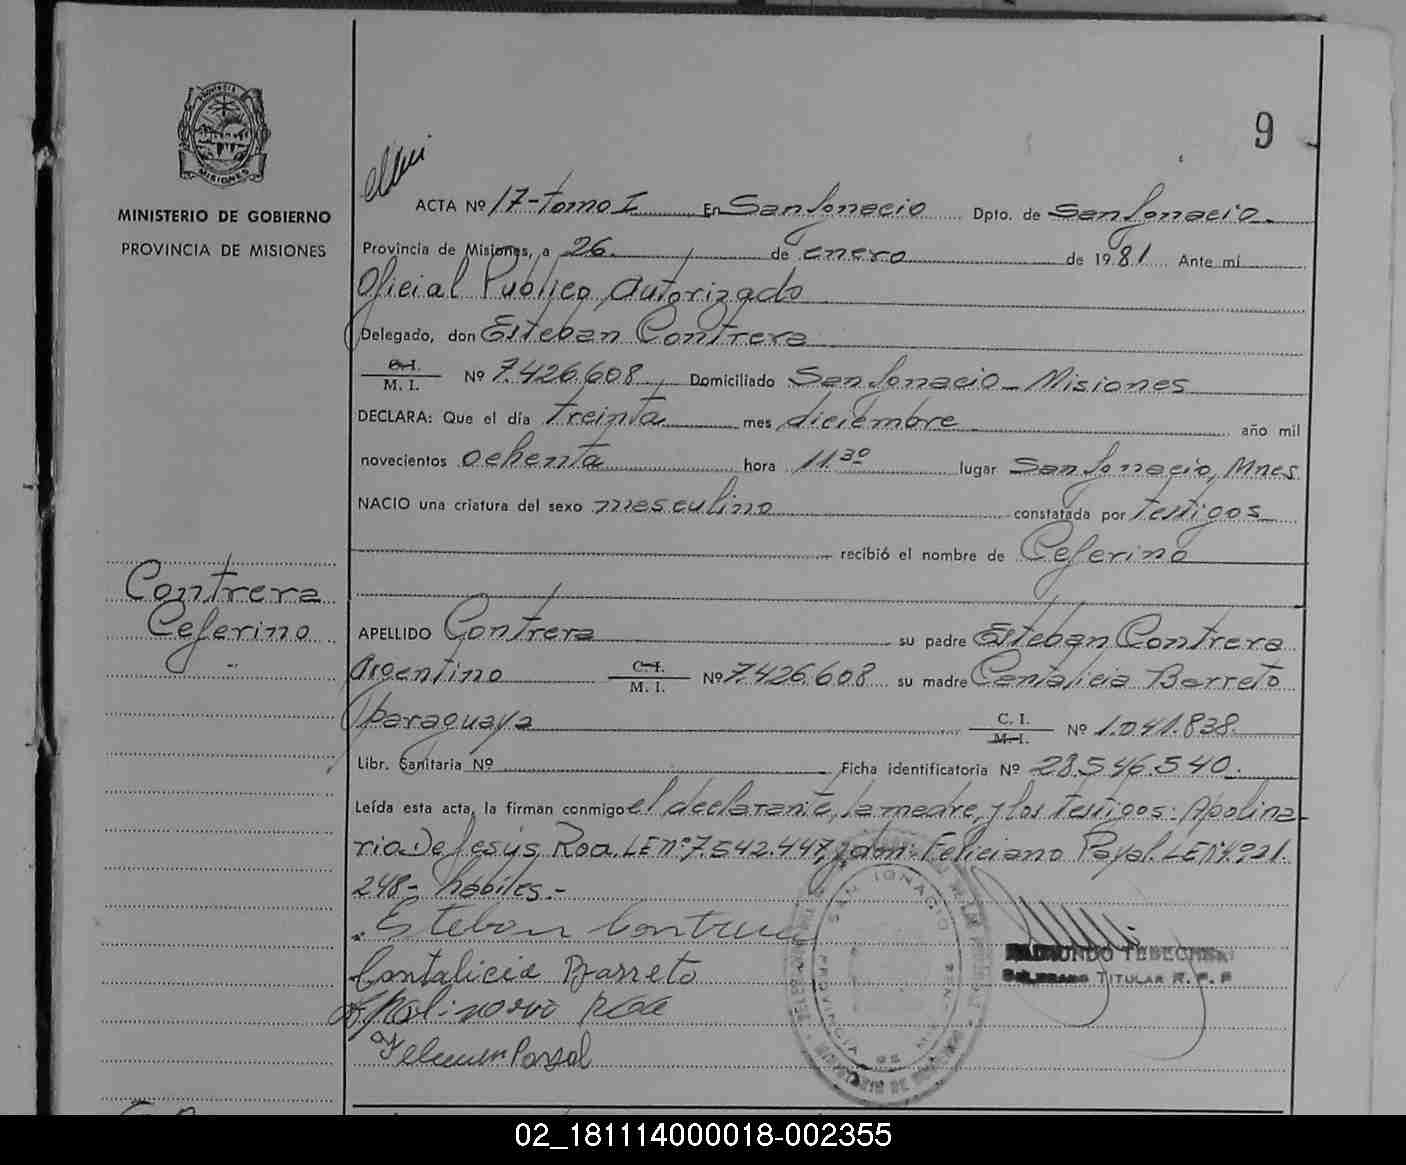 PROVINCIA
MISIONES
MINISTERIO DE GOBIERNO
PROVINCIA DE MISIONES
9
ACTA Nº 17-tomo I En San Ignacio Dpto. de San Ignacio.
Provincia de Misiones, a 26. de enero de 1981 Ante mí
Oficial Público Autorizado
Delegado, don Esteban Contrera
C.I. / M. I. Nº 7.426.608 Domiciliado San Ignacio - Misiones
DECLARA: Que el día treinta mes diciembre año mil
novecientos ochenta hora 11 30 lugar San Ignacio, Mnes
NACIO una criatura del sexo masculino constatada por testigos
recibió el nombre de Ceferino
Contrera
Ceferino
APELLIDO Contrera su padre Esteban Contrera
argentino C.I. / M. I. Nº 7.426.608 su madre Cantalicia Barreto
paraguaya C. I. / M.I. Nº 1.041.838.
Libr. Sanitaria Nº Ficha identificatoria Nº 28.546.540.
Leída esta acta, la firman conmigo el declarante, la madre, y los testigos: Apolina-
rio De Jesús Roa. LE nº 7.542.447, y don: Feliciano LE nº 921.
248- hábiles.-
Esteban Contrera
Cantalicia Barreto
Apolinario Roa
SAN IGNACIO
PROVINCIA DE
RAIMUNDO
DELEGADO TITULAR R. P. P
02_181114000018-002355